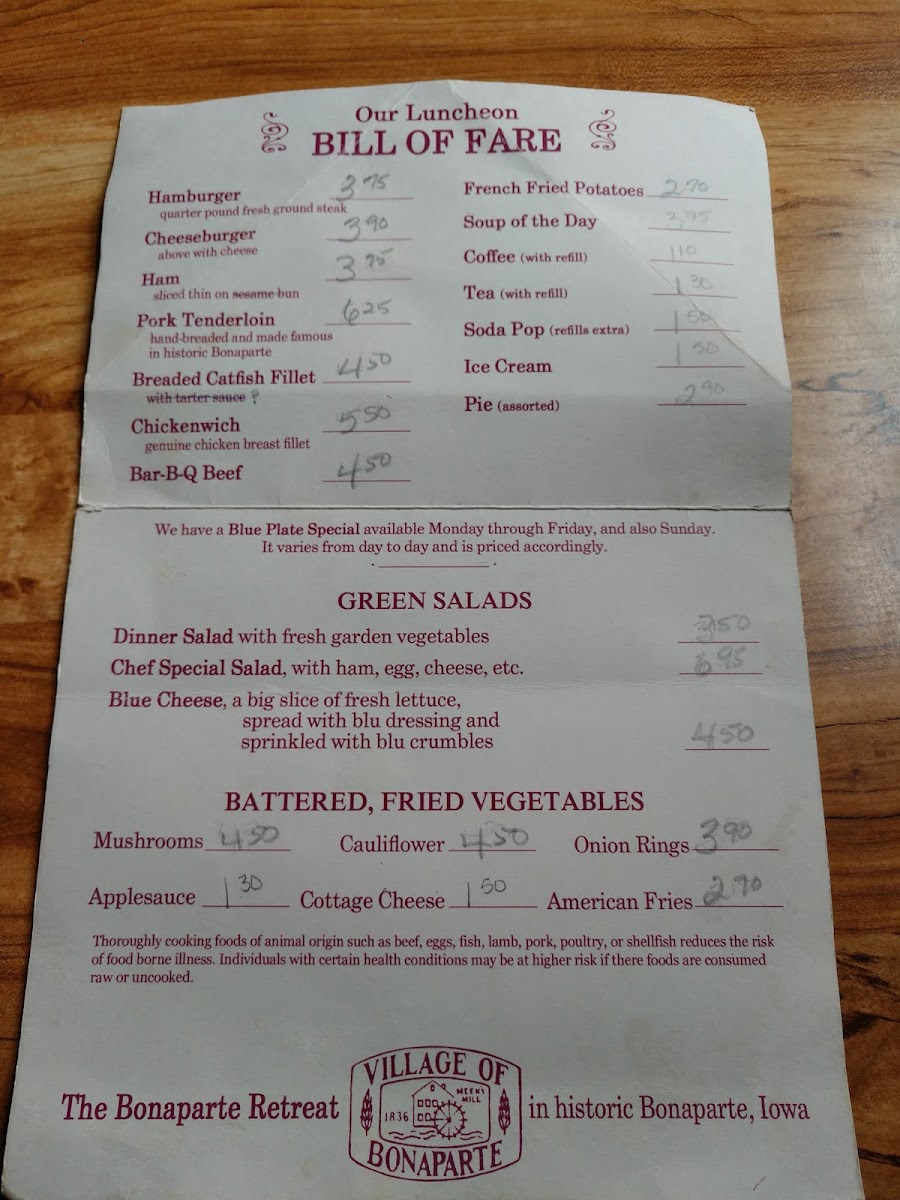 Our Luncheon
BILL OF FARE
Hamburger 3 75
quarter pound fresh ground steak
Cheeseburger 3 90
above with cheese
Ham 3 75
sliced thin on sesame bun
Pork Tenderloin 6 25
hand-breaded and made famous
in historic Bonaparte
Breaded Catfish Fillet 4 50
with tarter sauce ?
Chickenwich 5 50
genuine chicken breast fillet
Bar-B-Q Beef 4 50
French Fried Potatoes 2 70
Soup of the Day
Coffee (with refill) 1 10
Tea (with refill) 1 30
Soda Pop (refills extra) 1 50
Ice Cream 1 50
Pie (assorted) 2 90
We have a Blue Plate Special available Monday through Friday, and also Sunday.
It varies from day to day and is priced accordingly.
GREEN SALADS
Dinner Salad with fresh garden vegetables 3 50
Chef Special Salad, with ham, egg, cheese, etc. 6 95
Blue Cheese, a big slice of fresh lettuce,
spread with blu dressing and
sprinkled with blu crumbles 4 50
BATTERED, FRIED VEGETABLES
Mushrooms 4 50 Cauliflower 4 50 Onion Rings 3 90
Applesauce 1 30 Cottage Cheese 1 50 American Fries 2 70
Thoroughly cooking foods of animal origin such as beef, eggs, fish, lamb, pork, poultry, or shellfish reduces the risk
of food borne illness. Individuals with certain health conditions may be at higher risk if there foods are consumed
raw or uncooked.
VILLAGE OF
MEEKS
MILL
1836
BONAPARTE
The Bonaparte Retreat in historic Bonaparte, Iowa